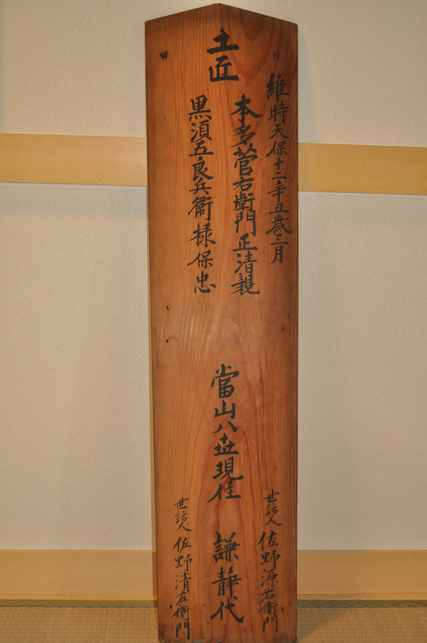 維時天保十二辛丑歳三月
土匠
本多菅右衛門正清親
黒須五良兵衛様保忠
當山八世現住 謙静代
世話人 佐野源右衛門
世話人 佐野清右衛門